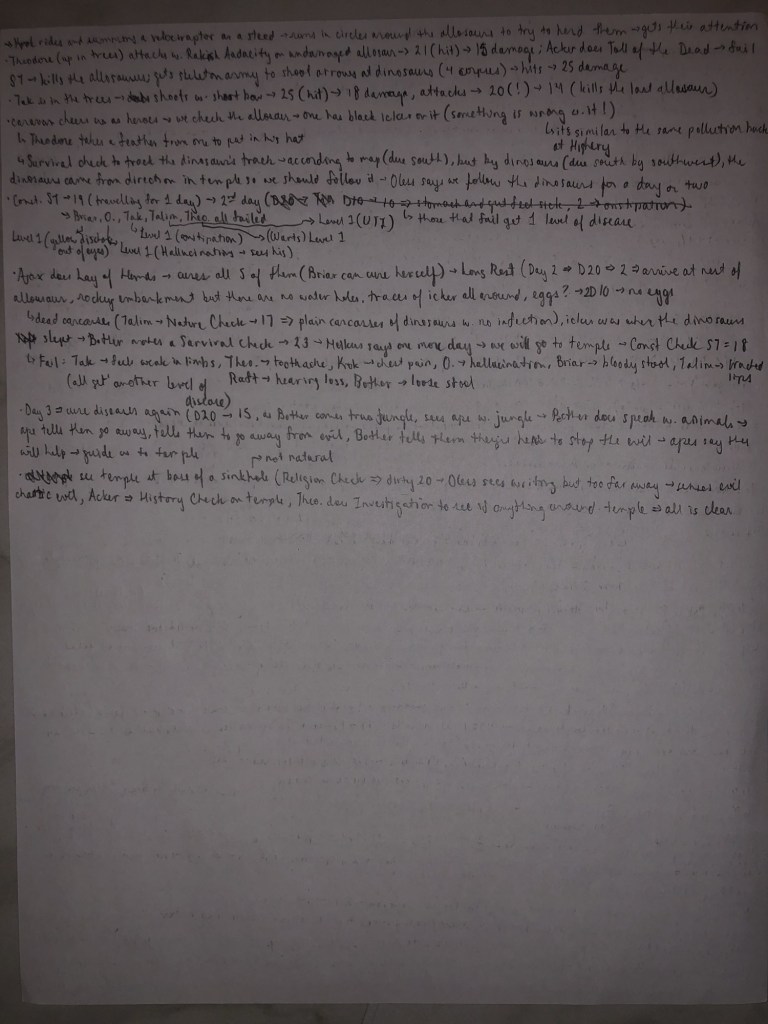 rides and summons a velociraptor as a steed → runs in circles around the allosaurs to try to herd them → gets their attention
· Theodore (up in trees) attacks w. Rakish Audacity on undamaged allosaur → 21 (hit) → 15 damage; Acker does Toll of the Dead → fail
ST → kills the allosaurus, gets skeleton army to shoot arrows at dinosaurs (4 corpses) → hits → 25 damage
· Tak is in the trees → shoots w. short bow → 25 (hit) → 18 damage, attacks → 20 (!) → 14 (kills the last allosaur)
· caravan cheers us as heroes → we check the allosaur → one has black icker on it (something is wrong w. it!)
↳ its similar to the same pollution
↳ Theodore takes a feather from one to put in his hat
at
↳ Survival check to track the dinosaur's track → according to map (due south), but by dinosaurs (due south by southwest), the
dinosaurs came from direction in temple so we should follow it → Oleus says we follow the dinosaurs for a day or two
· Const. ST → 19 (travelling for 1 day) → 2nd day (D10 → 10 ⇒ stomach and feel sick, 2 ⇒ constipation)
↳ Briar, O., Tak, Talim, Theo. all failed → Level 1 (UTI) ↳ those that fail get 1 level of disease
Level 1 (yellow discharge out of eyes) Level 1 (constipation) → (Warts) Level 1
Level 1 (Hallucinations → sees his)
· Ajax does Lay of Hands → cures all 5 of them (Briar can cure herself) → Long Rest (Day 2 ⇒ D20 ⇒ 2 ⇒ arrive at nest of
allosaur, rocky embankment but there are no water holes, traces of icker all around, eggs? → 2D10 → no eggs
↳ dead carcasses (Talim → Nature Check → 17 ⇒ plain carcasses of dinosaurs w. no infection), icker was where the dinosaurs
slept → Bother makes a Survival Check → 23 → says one more day → we will go to temple → Const Check ST = 18
↳ Fail: Tak → feels weak in limbs, Theo. → toothache, Krok → chest pain, O. → hallucination, Briar → bloody stool, Talim → lips
(all get another level of disease) Raft → hearing loss, Bother → loose stool
· Day 3 ⇒ cure diseases again (D20 → 15, as Bother comes true jungle, sees ape w. jungle → Bother does speak w. animals →
ape tells them go away, tells them to go away from evil, Bother tells them they're here to stop the evil → apes say they
will help → guide us to temple
↱ not natural
· see temple at base of a sinkhole (Religion Check ⇒ dirty 20 → Oleus sees writing but too far away → senses evil
chaotic evil, Acker ⇒ History Check on temple, Theo. does Investigation to see if anything around temple ⇒ all is clear